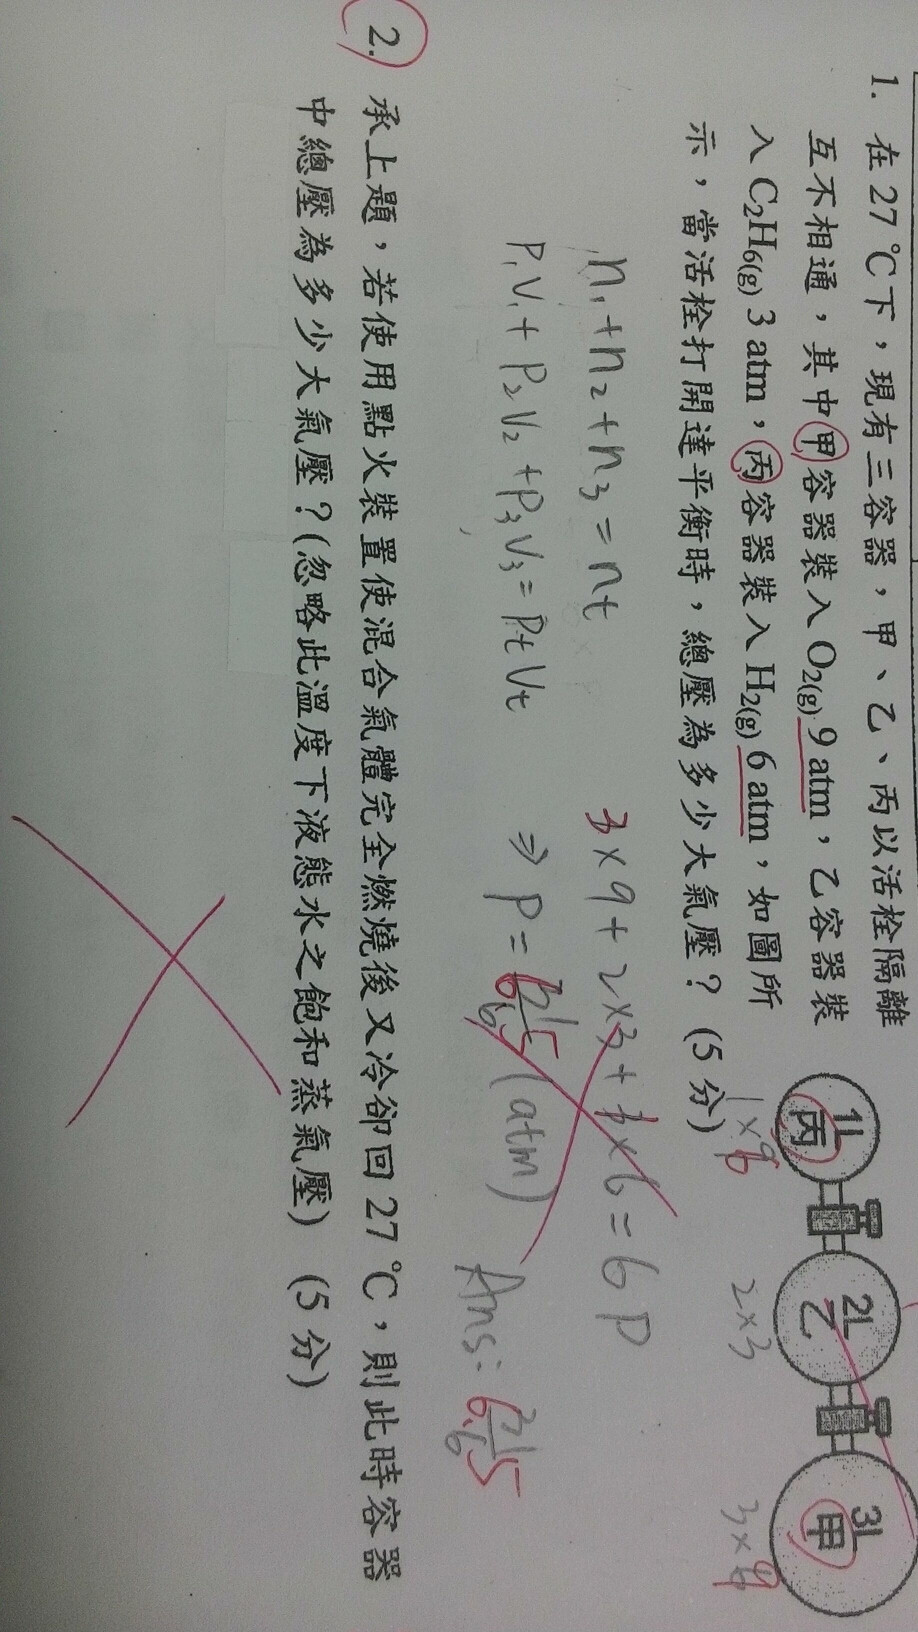 1. 在27℃下，現有三容器，甲、乙、丙以活栓隔離
互不相通，其中甲容器裝入O₂(g) 9 atm，乙容器裝
入C₂H₆(g) 3 atm，丙容器裝入H₂(g) 6 atm，如圖所
示，當活栓打開達平衡時，總壓為多少大氣壓？(5分)
1L
丙
2L
乙
3L
甲
2×3
n₁+n₂+n₃=nt
3×9+2×3+1×6=6P
P₁V₁+P₂V₂+P₃V₃=PtVt
⇒ P=
(atm)
Ans:
2. 承上題，若使用點火裝置使混合氣體完全燃燒後又冷卻回27℃，則此時容器
中總壓為多少大氣壓？(忽略此溫度下液態水之飽和蒸氣壓) (5分)